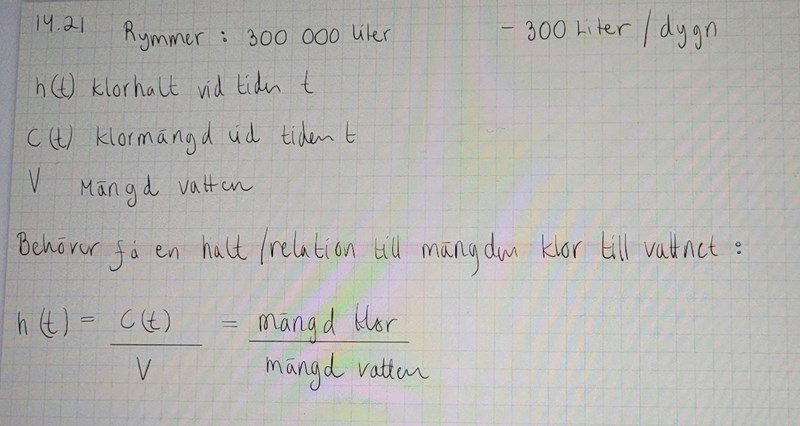 14.21 Rymmer : 300 000 liter - 300 Liter / dygn
h(t) klorhalt vid tiden t
C(t) klormängd vid tiden t
V Mängd vatten
Behöver få en halt /relation till mängden klor till vattnet :
h(t) = C(t) / V = mängd klor / mängd vatten